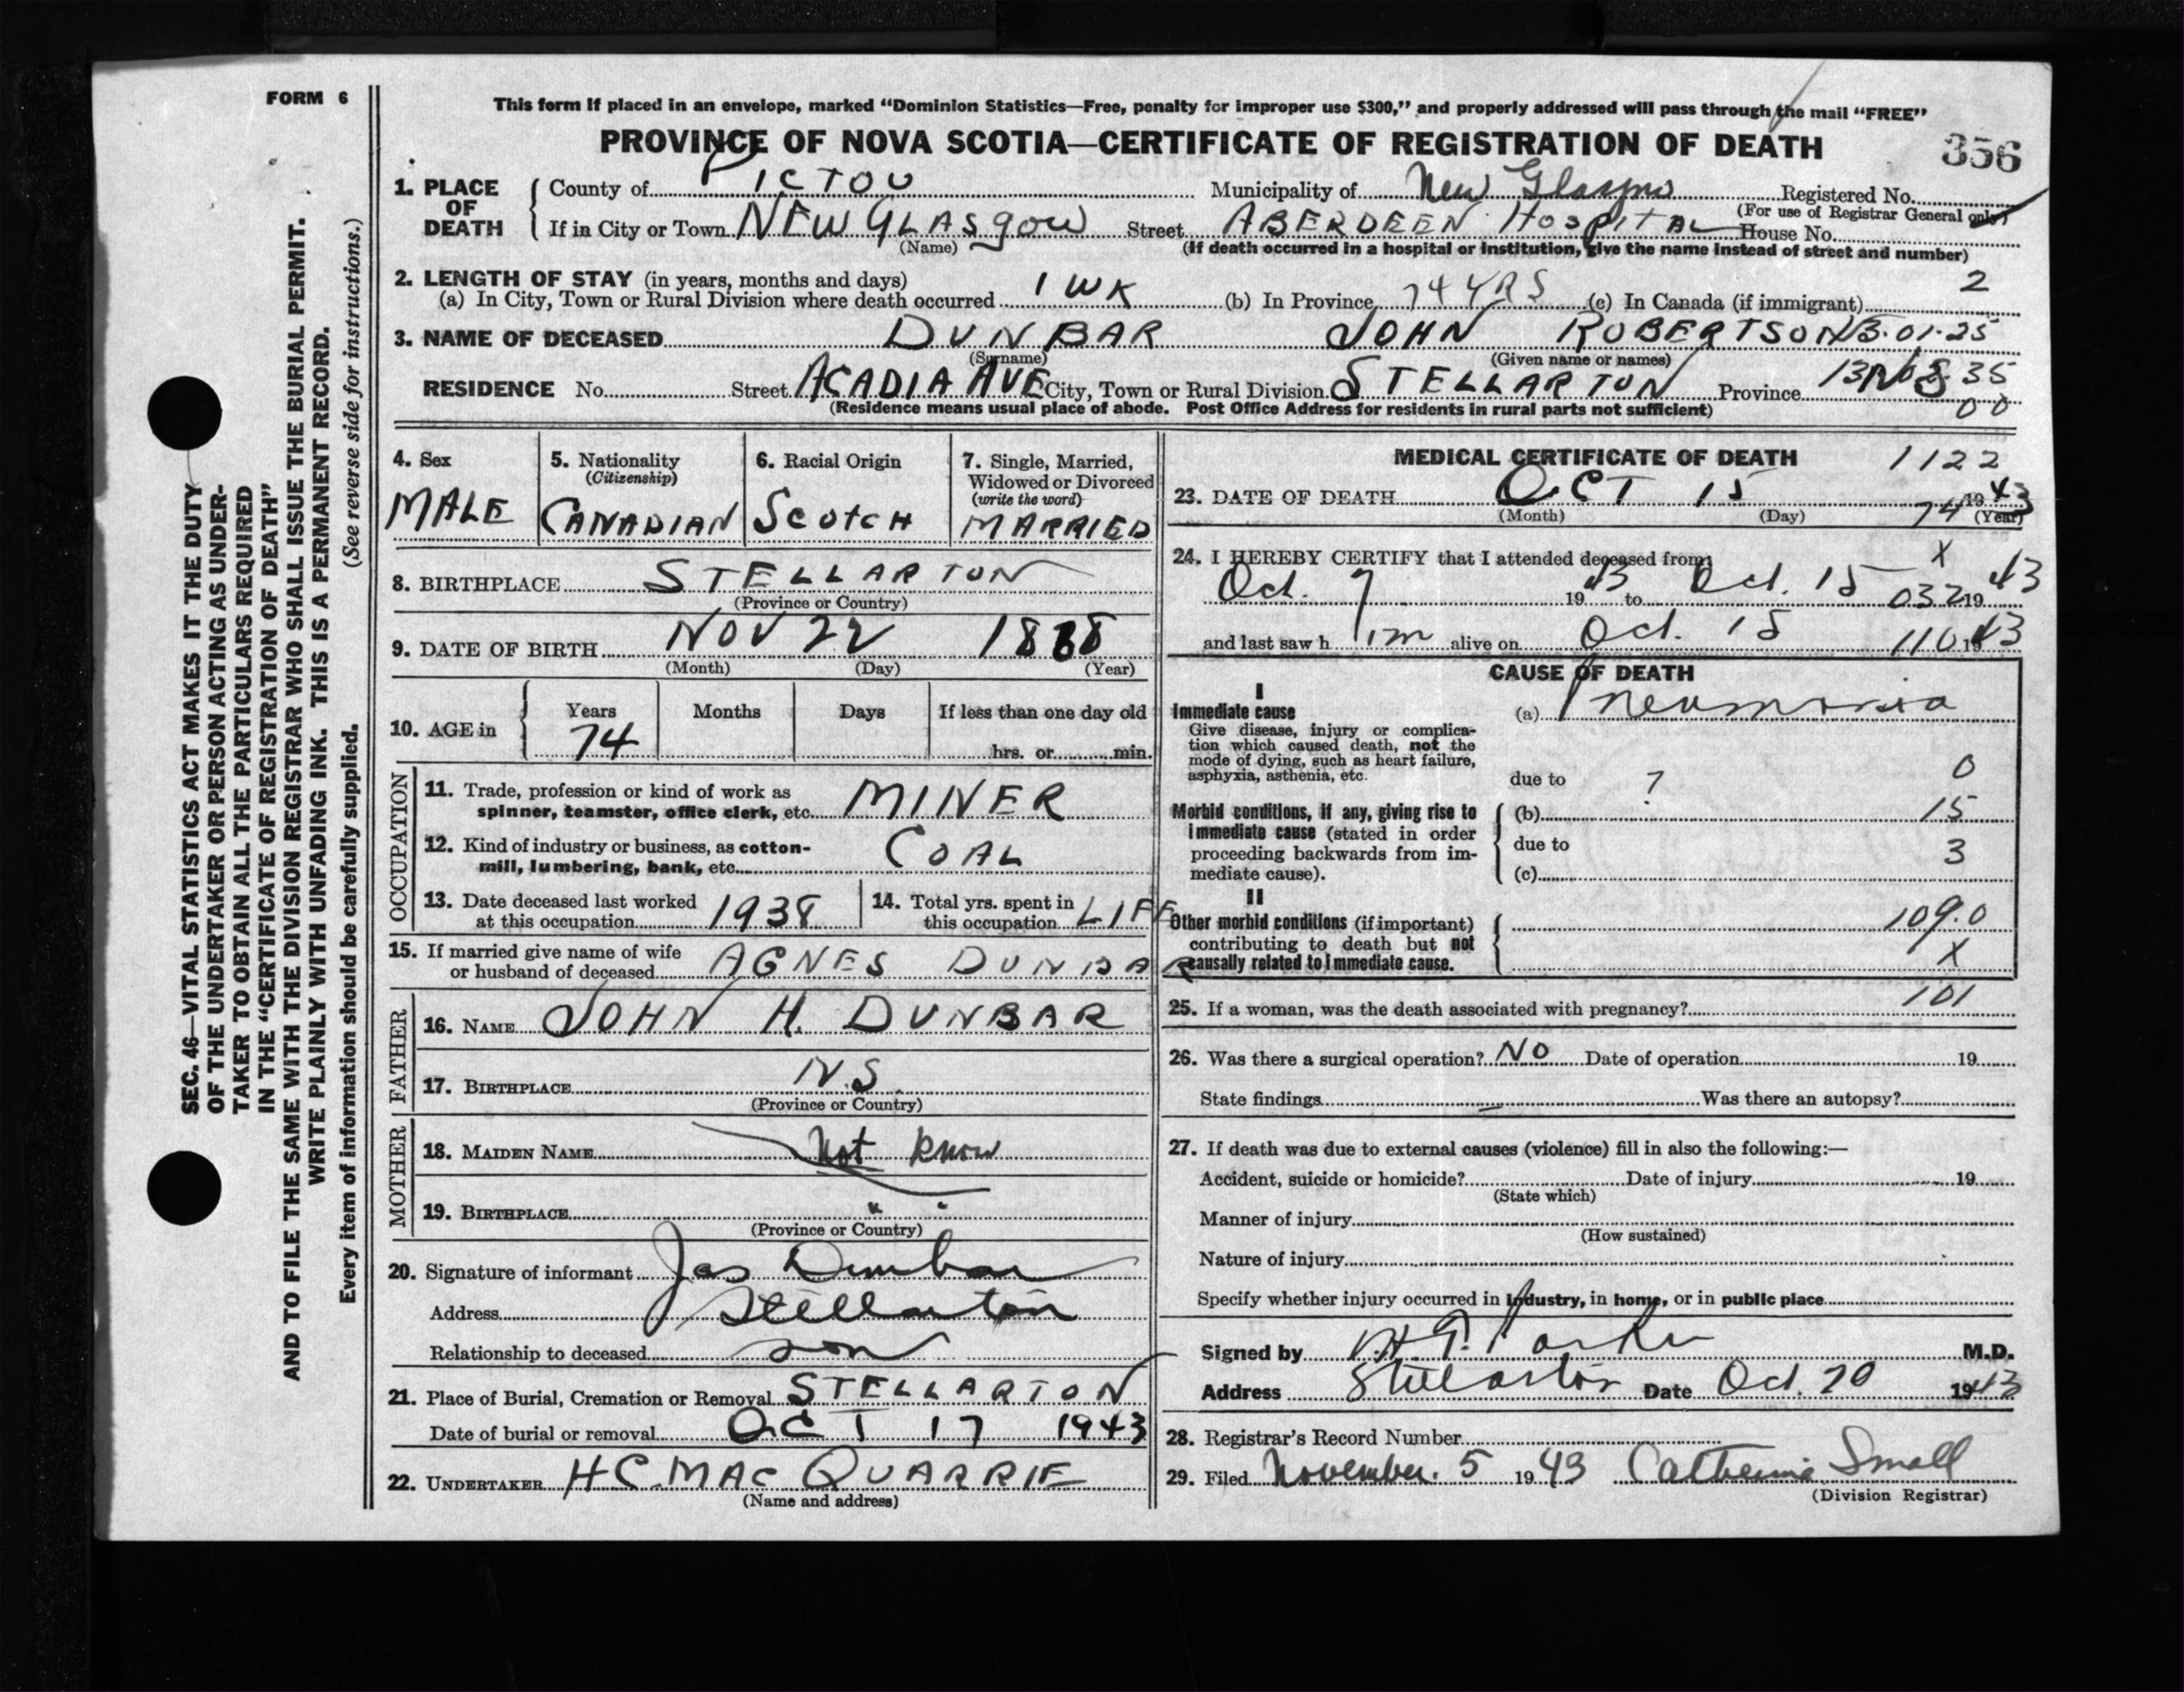 FORM 6
This form if placed in an envelope, marked "Dominion Statistics—Free, penalty for improper use $300," and properly addressed will pass through the mail "FREE"
PROVINCE OF NOVA SCOTIA—CERTIFICATE OF REGISTRATION OF DEATH
356
1. PLACE OF DEATH
County of PICTOU Municipality of New Glasgow Registered No.
(For use of Registrar General only)
If in City or Town NEW GLASGOW Street ABERDEEN HOSPITAL House No.
(Name) (If death occurred in a hospital or institution, give the name instead of street and number)
2. LENGTH OF STAY (in years, months and days) 2
(a) In City, Town or Rural Division where death occurred 1 WK (b) In Province 74 YRS (c) In Canada (if immigrant)
3. NAME OF DECEASED DUNBAR JOHN ROBERTSON 13.01.25
(Surname) (Given name or names)
RESIDENCE No. Street ACADIA AVE City, Town or Rural Division STELLARTON Province N S 35
(Residence means usual place of abode. Post Office Address for residents in rural parts not sufficient) 00
4. Sex
MALE
5. Nationality
(Citizenship)
CANADIAN
6. Racial Origin
SCOTCH
7. Single, Married,
Widowed or Divorced
(write the word)
MARRIED
8. BIRTHPLACE STELLARTON
(Province or Country)
9. DATE OF BIRTH NOV 22 1868
(Month) (Day) (Year)
10. AGE in
Years Months Days If less than one day old
74 hrs. or min.
OCCUPATION
11. Trade, profession or kind of work as
spinner, teamster, office clerk, etc. MINER
12. Kind of industry or business, as cotton-
mill, lumbering, bank, etc. COAL
13. Date deceased last worked
at this occupation 1938
14. Total yrs. spent in
this occupation LIFE
15. If married give name of wife
or husband of deceased AGNES DUNBAR
FATHER
16. NAME JOHN H. DUNBAR
17. BIRTHPLACE N.S.
(Province or Country)
MOTHER
18. MAIDEN NAME Not know
19. BIRTHPLACE " "
(Province or Country)
20. Signature of informant Jas Dunbar
Address Stellarton
Relationship to deceased son
21. Place of Burial, Cremation or Removal STELLARTON
Date of burial or removal OCT 17 1943
22. UNDERTAKER H C. MAC QUARRIE
(Name and address)
MEDICAL CERTIFICATE OF DEATH 1122
23. DATE OF DEATH OCT 15 1943
(Month) (Day) 74 (Year)
24. I HEREBY CERTIFY that I attended deceased from: X
Oct. 7 1943 to Oct. 15 032 1943
and last saw h im alive on Oct. 15 110 1943
CAUSE OF DEATH
I
Immediate cause (a) Pneumonia
Give disease, injury or complica-
tion which caused death, not the
mode of dying, such as heart failure,
asphyxia, asthenia, etc. due to ? 0
Morbid conditions, if any, giving rise to (b) 15
immediate cause (stated in order due to
proceeding backwards from im- 3
mediate cause). (c)
II
Other morbid conditions (if important) 109.0
contributing to death but not
causally related to immediate cause. X
25. If a woman, was the death associated with pregnancy? 101
26. Was there a surgical operation? NO Date of operation 19
State findings — Was there an autopsy?
27. If death was due to external causes (violence) fill in also the following:—
Accident, suicide or homicide? Date of injury 19
(State which)
Manner of injury
(How sustained)
Nature of injury
Specify whether injury occurred in industry, in home, or in public place
Signed by Parker M.D.
Address Stellarton Date Oct. 20 1943
28. Registrar's Record Number
29. Filed November. 5 1943 Catherine Small
(Division Registrar)
SEC. 46—VITAL STATISTICS ACT MAKES IT THE DUTY
OF THE UNDERTAKER OR PERSON ACTING AS UNDER-
TAKER TO OBTAIN ALL THE PARTICULARS REQUIRED
IN THE "CERTIFICATE OF REGISTRATION OF DEATH"
AND TO FILE THE SAME WITH THE DIVISION REGISTRAR WHO SHALL ISSUE THE BURIAL PERMIT.
WRITE PLAINLY WITH UNFADING INK. THIS IS A PERMANENT RECORD.
Every item of information should be carefully supplied. (See reverse side for instructions.)